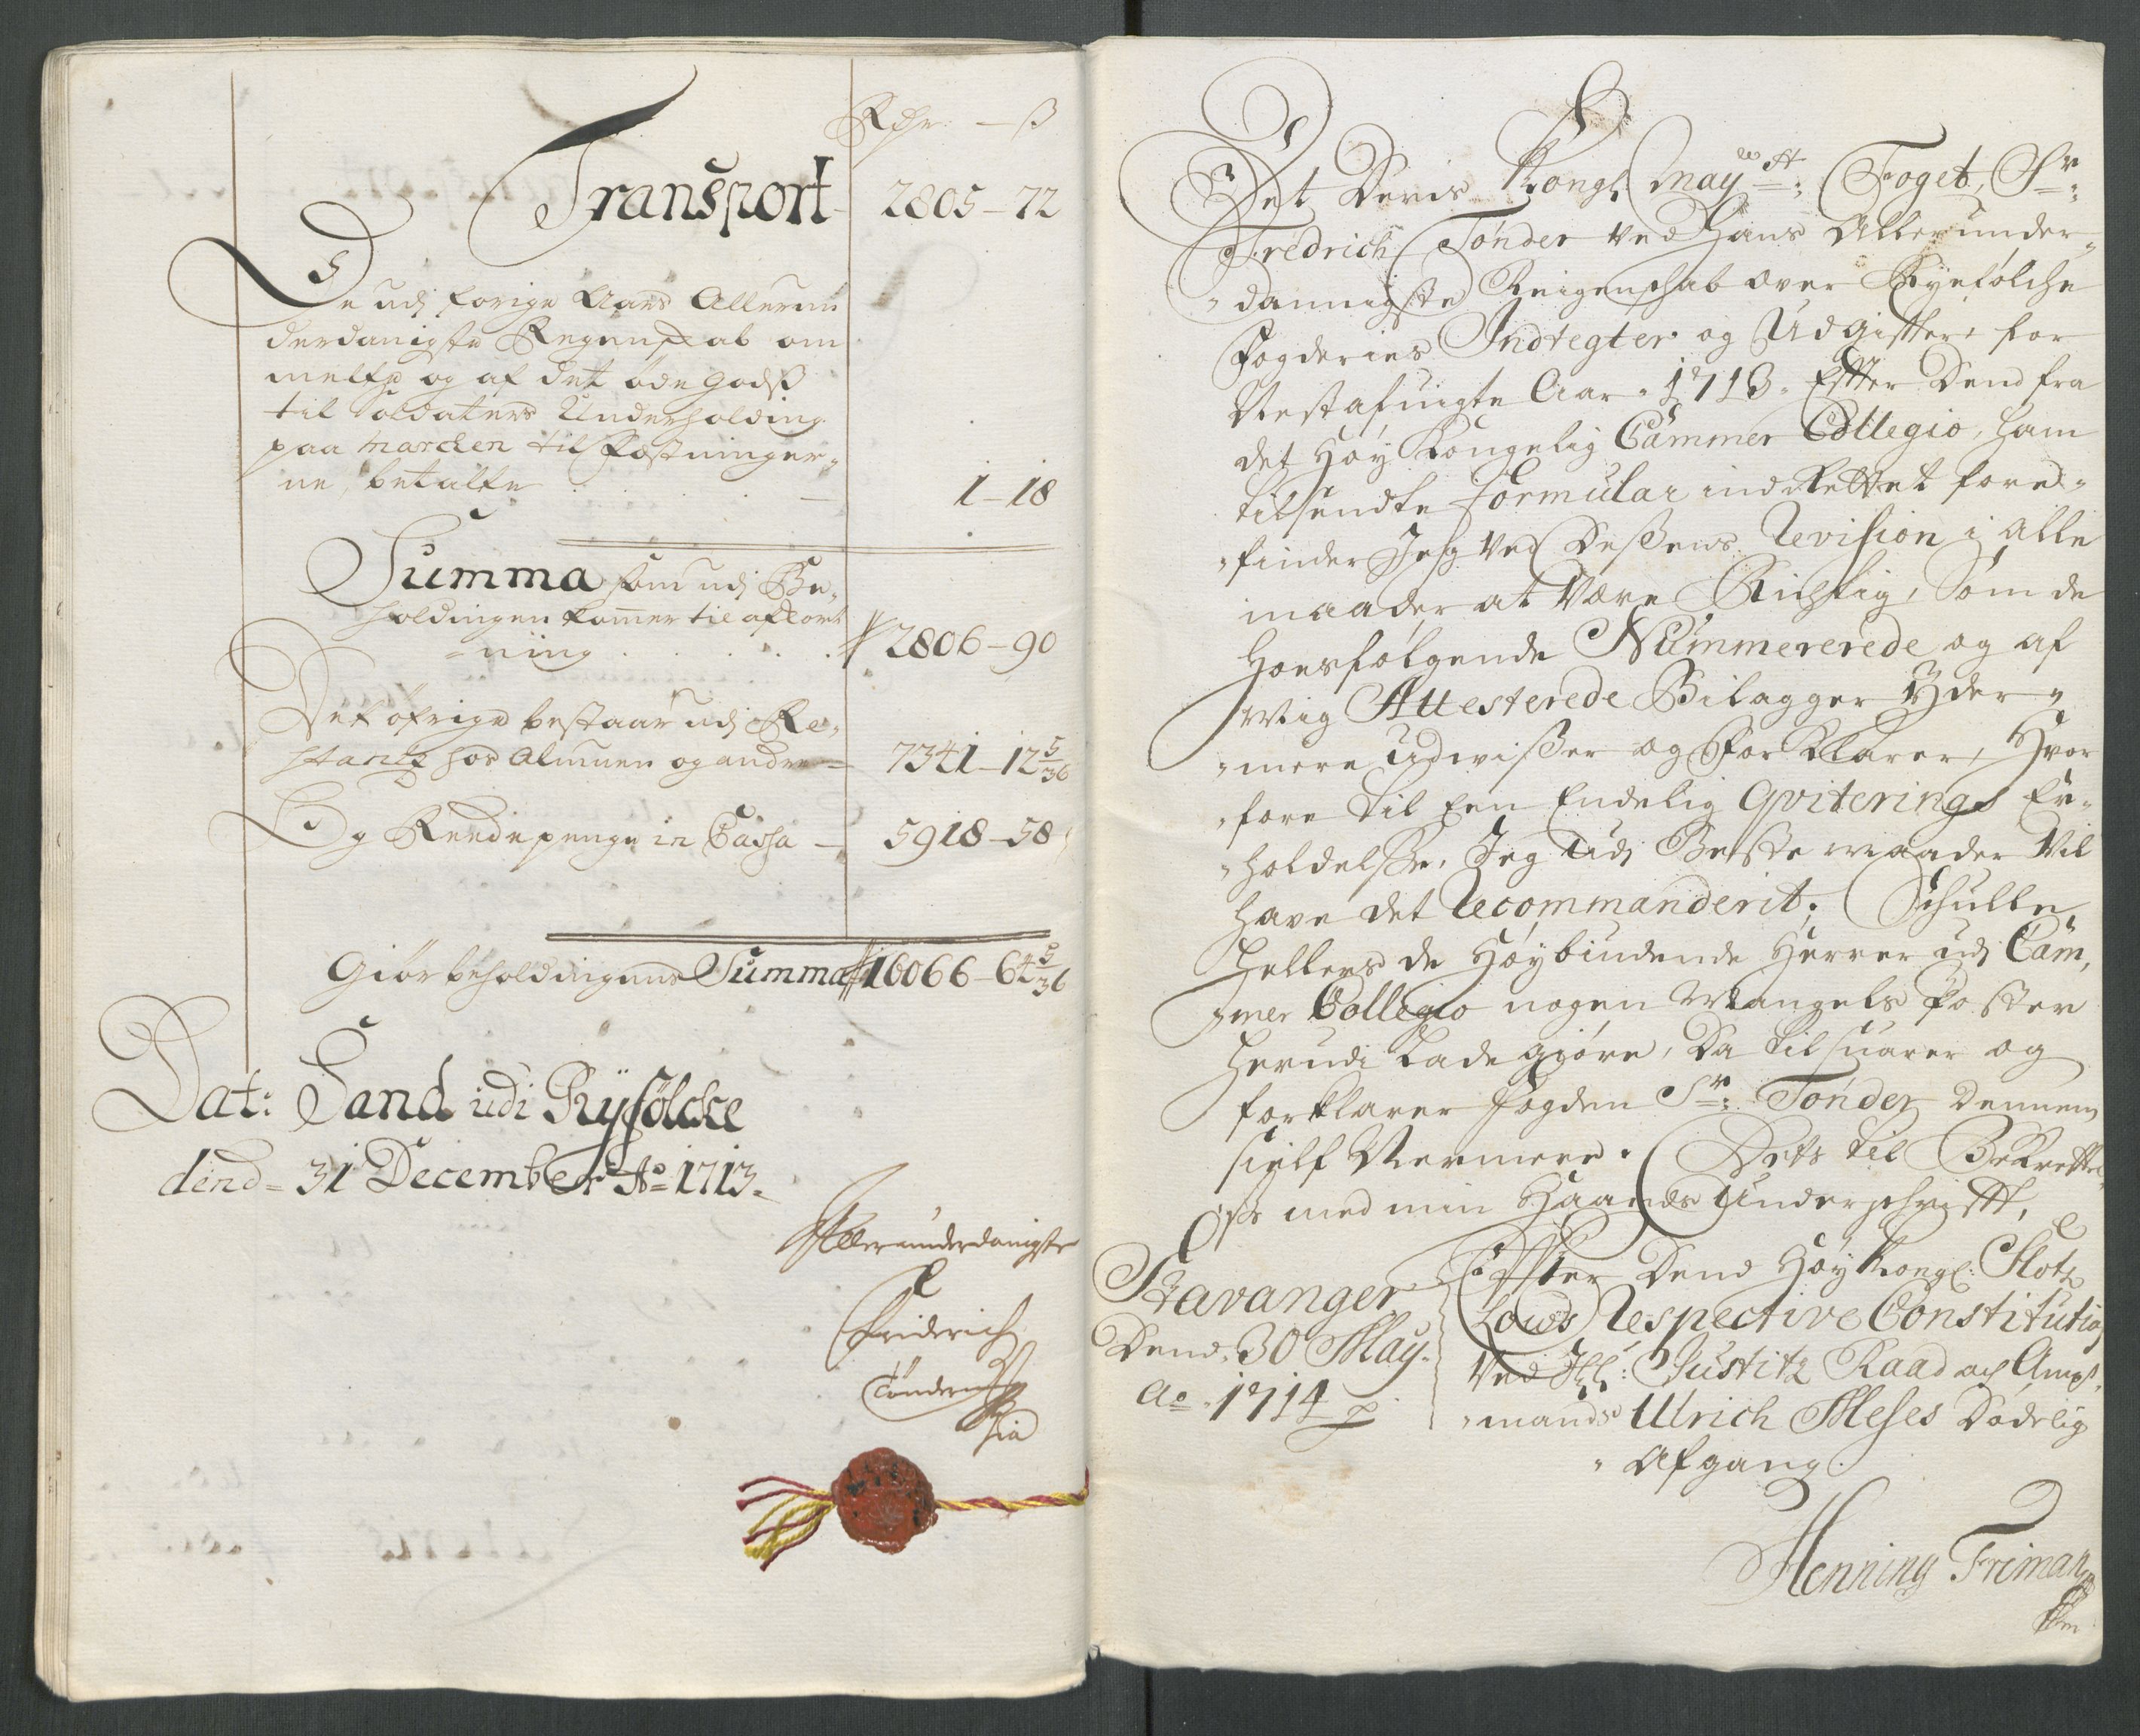 Rdr – ß
Transport – 2805 – 72
De udj forige Aars Allerun
derdanigste Regenskab om
melte og af det øde Godß
til Soldaters Underholding
paa Marchen til Fæstninger„
ne, betalte . . . . – 1 – 18
Summa som udj Be„
holdingen kommer til afkort
„ning . . . . . 2806 – 90
Det øfrige bestaar udj Re„
stantz hos Almuen og andre – 7341 – 12 5/36
Og Reedepenge in Cassa – 5918 – 58
Giør beholdingens Summa 16066 – 64 5/36
Dat: Sand udi Ryfølcke
dend = 31 December Ao 1713.
Allerunderdanigste
Friderich
Tønder
Det Deris Kongl. May.tt: Foget, Sr:
Fredrich Tønder ved Hans Allerunder„
„dannigste Reigenschab over Ryefølche
Fogderies Indtegter og Udgifter, for
Nestafuigte Aar 1713. Efter Dend fra
det Høy Kongelig Cammer Collegio, ham
tilsendte Formular indRettet fore„
„finder Jeg ved Deßens Revision i alle
maader at være Richtig, Som de
Hoesfølgende Nummererede og af
Mig Attesterede Bilagger Yder„
„mere Udwißer og ForKlarer, Hvor
„fore til Een Endelig Qviterings Er„
„holdelße, Jeg Udj Beste maader Vil
have det Recommanderit; Schulle
Hellers de Høybiudende Herrer udj Cam„
„mer Collegio nogen Mangels Poster
Herudi Lade giøre, Da tilsuarer og
forklarer Fogden Sr: Tønder Dennem
sielf Nermere. Dets til BeKreftel„
ße med min Haands Underschrifft,
Stavanger
Dend. 30 May.
Ao. 1714
Effter Dend Høy Kongl: Slotz
Lows Respective Constitution
Ved Hl: Justitz Raad och Ampt„
„mands Ulrich Meses Dødelig
„Afgang.
Henning Friman